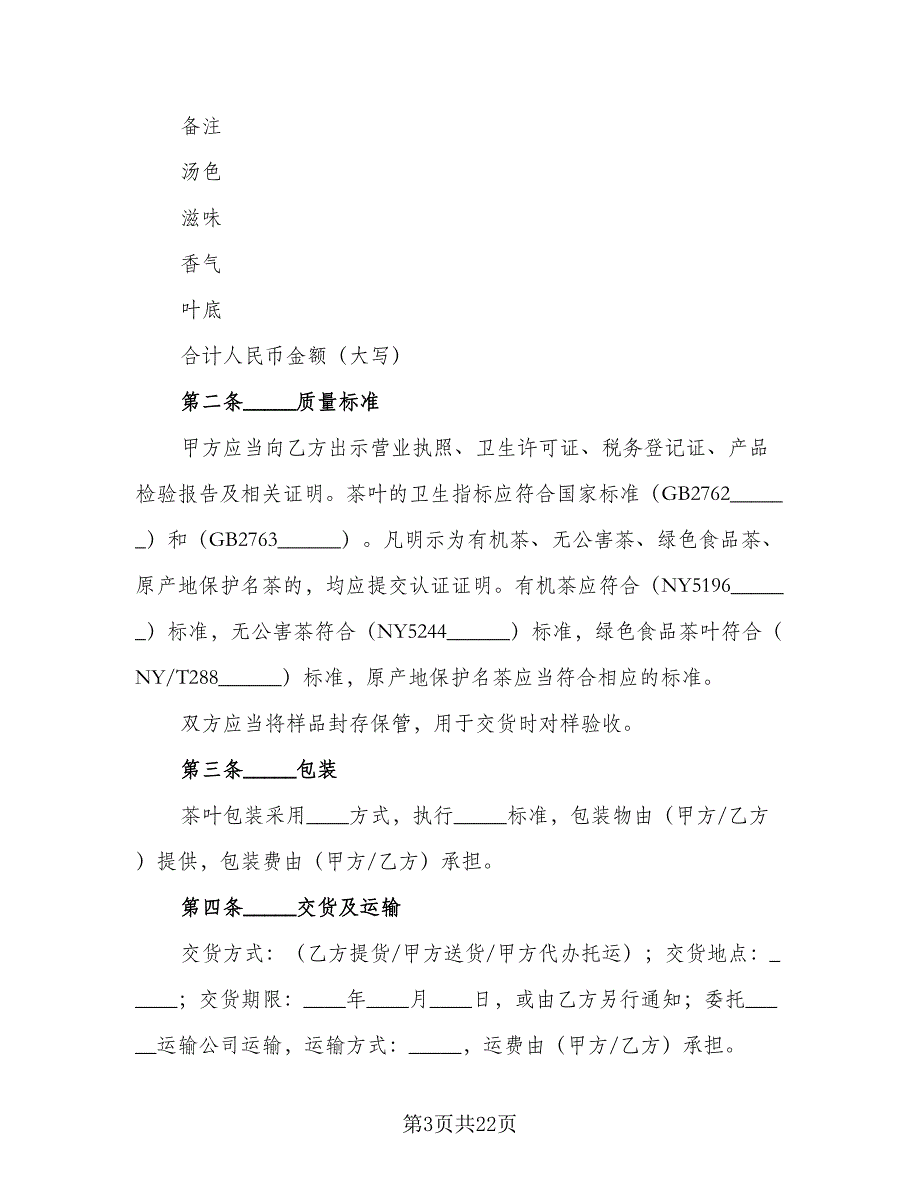 备注
汤色
滋味
香气
叶底
合计人民币金额（大写）
第二条_____质量标准
甲方应当向乙方出示营业执照、卫生许可证、税务登记证、产品
检验报告及相关证明。茶叶的卫生指标应符合国家标准（GB2762_____
_）和（GB2763______）。凡明示为有机茶、无公害茶、绿色食品茶、
原产地保护名茶的，均应提交认证证明。有机茶应符合（NY5196_____
_）标准，无公害茶符合（NY5244______）标准，绿色食品茶叶符合（
NY/T288______）标准，原产地保护名茶应当符合相应的标准。
双方应当将样品封存保管，用于交货时对样验收。
第三条_____包装
茶叶包装采用____方式，执行_____标准，包装物由（甲方/乙方
）提供，包装费由（甲方/乙方）承担。
第四条_____交货及运输
交货方式：（乙方提货/甲方送货/甲方代办托运）；交货地点：_
____；交货期限：____年____月____日，或由乙方另行通知；委托___
__运输公司运输，运输方式：_____，运费由（甲方/乙方）承担。
第3页共22页